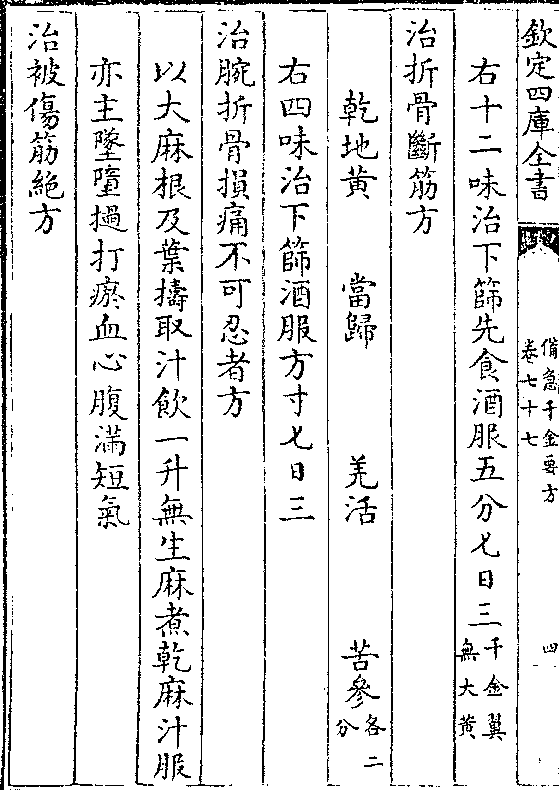 欽定四庫全書
備急千金要方
卷七十七
四
右十二味治下篩先食酒服五分匕日三千金翼無大黄
治折骨斷筋方
乾地黄　當歸　羌活　苦參各二分
右四味治下篩酒服方寸匕日三
治腕折骨損痛不可忍者方
以大麻根及葉擣取汁飲一升無生麻煮乾麻汁服
亦主墜墮撾打瘀血心腹滿短氣
治被傷筋絶方